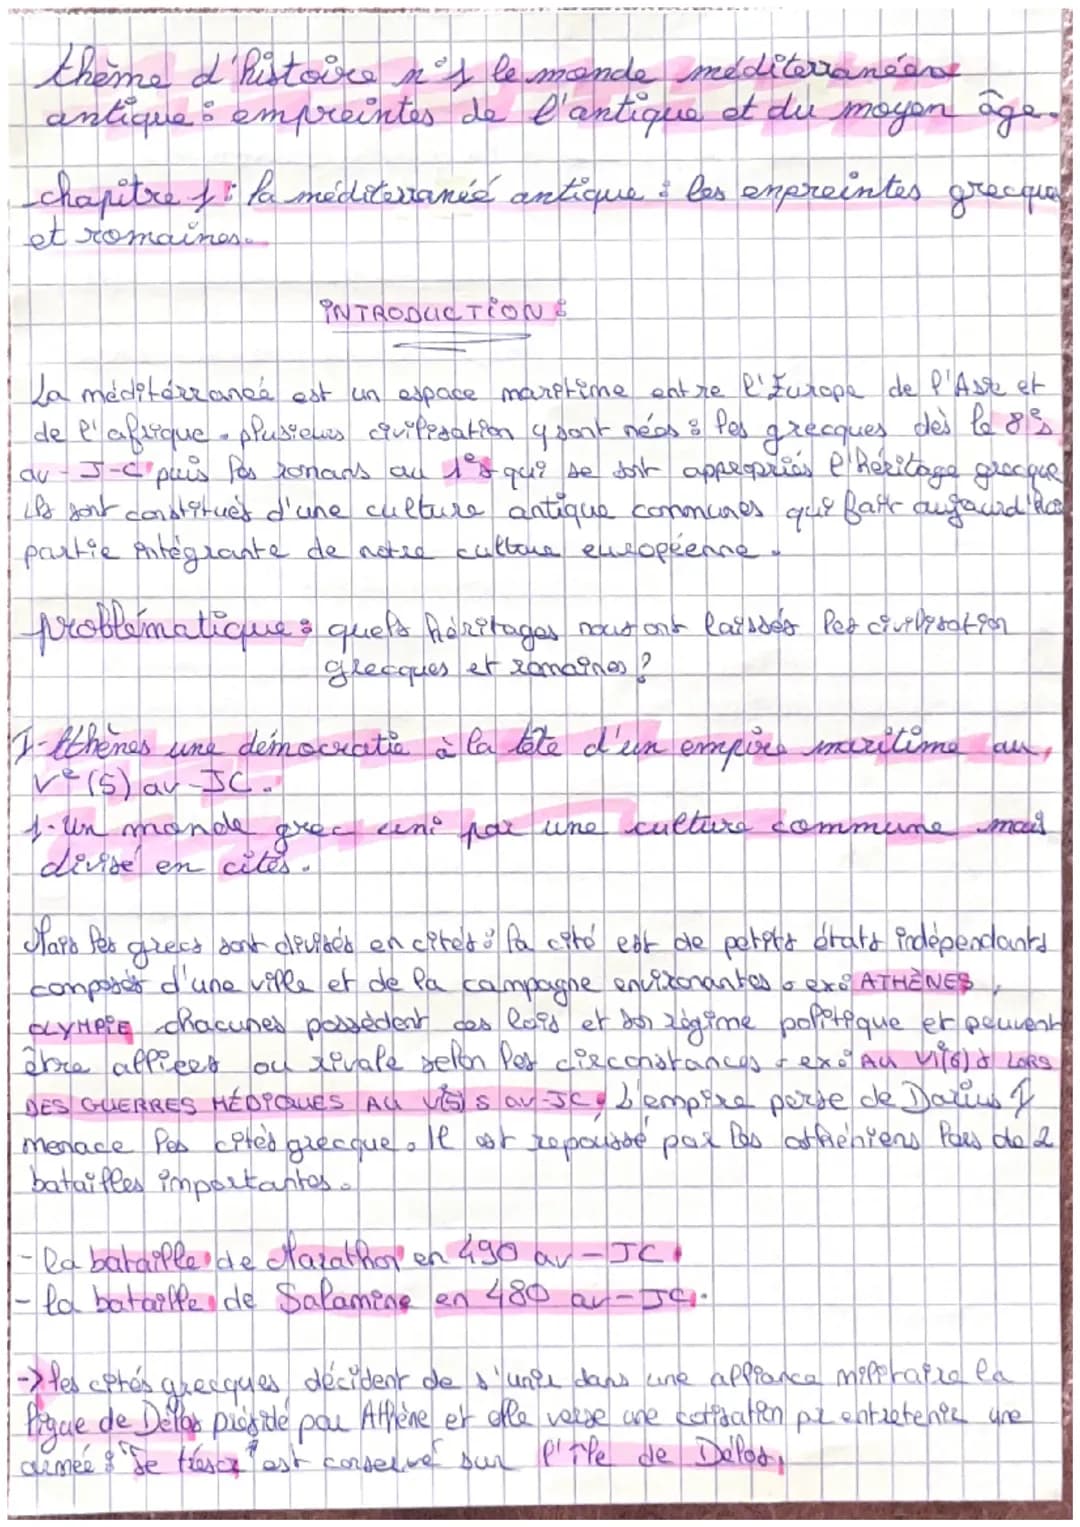 thème d'histoire n°1 le monde méditerranéen
antique : empreintes de l'antique et du moyen âge.
chapitre 1 : la méditerranéé antique : les enpreintes grecques
et romaines.
INTRODUCTION :
La méditérranéé est un espace maritime entre l'Europe de l'Asie et
de l'afrique. plusieurs civilisation y sont nées : les grecques dès le 8es
av-J-C puis les romans au 1es qui se sont appropriés l'héritage grecque
ils sont constitués d'une culture antique communes qui fait aujourd'hui
partie intégrante de notre culture européenne.
problématique : quels héritages nous ont laissés les civilisation
grecques et romaines ?
I-Athènes une démocratie à la tête d'un empire maritime au
Ve (5) av-JC.
1-Un monde grec uni par une culture commune mais
divisé en cités.
Mais les grecs sont divisés en cités : la cité est de petits états indépendants
composés d'une ville et de la campagne environantes. ex : ATHÈNES,
OLYMPIE chacunes possèdent des lois et son régime politique et peuvent
être alliées ou rivale selon les circonstances. ex : AU VI(6)s LORS
DES GUERRES MÉDIQUES AU V(5)s av-JC, L'empire perse de Darius I
menace les cités grecque. Il est repoussé par les athéniens lors de 2
batailles importantes.
-la bataille de Marathon en 490 av-JC
-la bataille de Salamine en 480 av-JC.
-> les cités grecques décident de s'unir dans une alliance militaire la
ligue de Délos présidé par Athène et elle verse une cotisation pr entretenir une
armée : "le trésor" est conservé sur l'île de Délos,